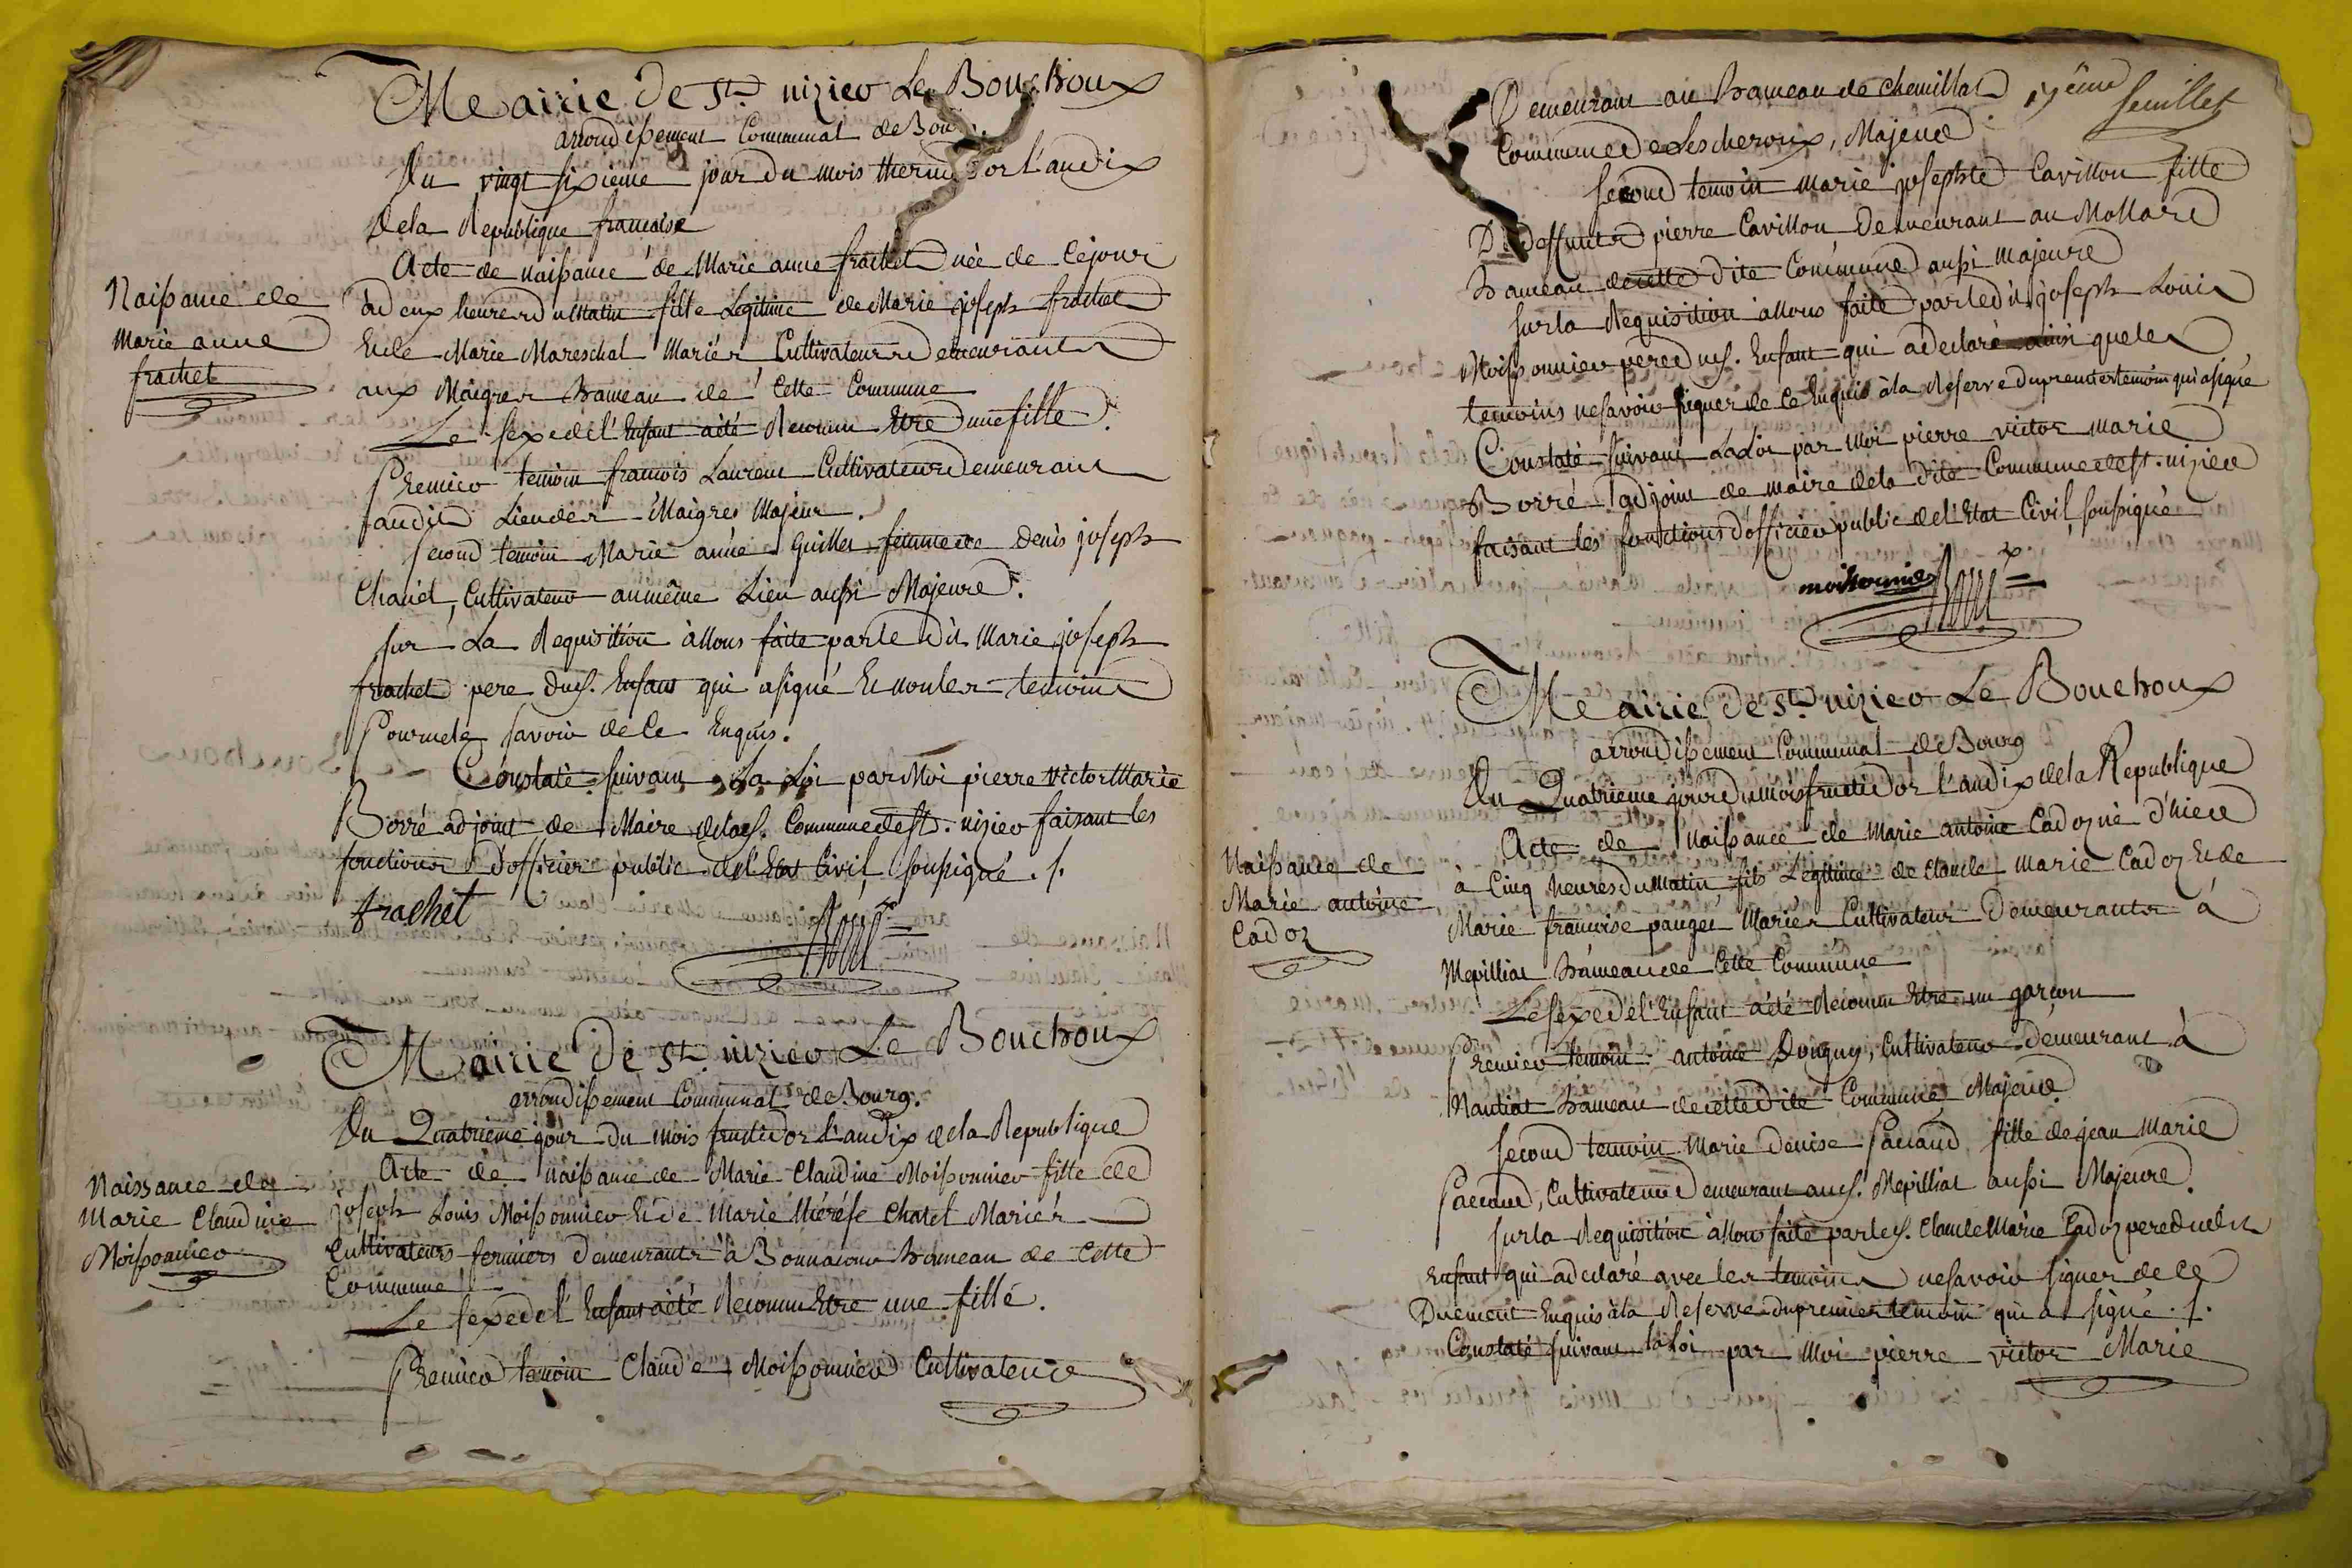 Mairie de St. nizier Le Bouchoux
arrondissement Communal de Bou
Du vingt sixieme jour du mois thermidor l'an dix
de la Republique francaise
Acte de naissance de Marie anne frachet née de Ce jour
Naissance de
Marie anne
frachet
à deux heures du Matin fille Legitime de Marie joseph frachet
Et de Marie Mareschal Mariés Cultivateurs demeurants
aux Maigres hameau de Cette Commune
Le sexe de l'Enfant a été Reconnu Etre une fille.
Premier temoin francois Laurent Cultivateur Demeurant
Lieu des Maigres Majeur.
second temoin Marie anne Guillet femme de Denis joseph
Chanel, Cultivateur au même Lieu aussi Majeure.
sur La Requisition à Nous faite par le dit Marie joseph
frachet pere duds. Enfant qui a signé Et non les temoins
Pour ne le savoir de Ce Enquis.
Constaté suivant La Loi par Moi pierre victor Marie
Borré adjoint de Maire de lads. Commune de st. nizier faisant les
fonctions d'officier public de l'Etat Civil, soussigné. /.
frachet
Mairie de St. nizier Le Bouchoux
arrondissement Communal de Bourg.
Du Quatrieme jour du mois fructidor l'an dix de la Republique
Acte de naissance de Marie Claudine Moissonnier fille de
Naissance de
Marie Claudine
Moissonnier
joseph Louis Moissonnier Et de Marie thérése Chatel Mariés
Cultivateurs fermiers demeurants à Bonnacour hameau de Cette
Commune
Le sexe de l'Enfant a été Reconnu Etre une fille.
Premier temoin Claude Moissonnier Cultivateur
17eme
feuillet
Demeurant au hameau de Chemillat
Commune de Lescheroux, Majeur
second temoin marie josephte Cavillon fille
De deffunt pierre Cavillon Demeurant au Mollard
hameau de cette dite Commune aussi majeure
sur la Requisition à Nous faite par le dit joseph Louis
Moissonnier pere duds. Enfant qui a declaré ainsi que les
temoins ne savoir signer de Ce Enquis à la Reserve du premier temoin qui a signé
Constaté suivant La Loi par Moi pierre victor marie
Borré adjoint de maire de la dite Commune de st. nizier
faisant les fonctions d'officier public de l'Etat Civil soussigné
moissonnier
Mairie de St. nizier Le Bouchoux
arrondissement Communal de Bourg
Du Quatrieme jour du mois fructidor l'an dix de la Republique
Acte de Naissance de Marie antoine Cadoz né d'hier
Naissance de
Marie antoine
Cadoz
à Cinq heures du Matin fils Legitime de Claude marie Cadoz Et de
Marie francoise panget Mariés Cultivateur Demeurants à
Mepilliat hameau de Cette Commune
Le sexe de l'Enfant a été Reconnu Etre un garcon
Premier temoin antoine Donguy, Cultivateur demeurant à
Nantiat hameau de cette dite Commune Majeur
second temoin Marie denise Paccaud fille de jean Marie
Paccaud, Cultivateur Demeurant auds. Mepilliat aussi Majeure.
sur la Requisition à Nous faite par leds. Claude Marie Cadoz pere dudit
Enfant qui a declaré avec les temoins ne savoir signer de Ce
Duement Enquis à la Reserve du premier temoin qui a signé. /.
Constaté suivant la Loi par Moi pierre victor Marie